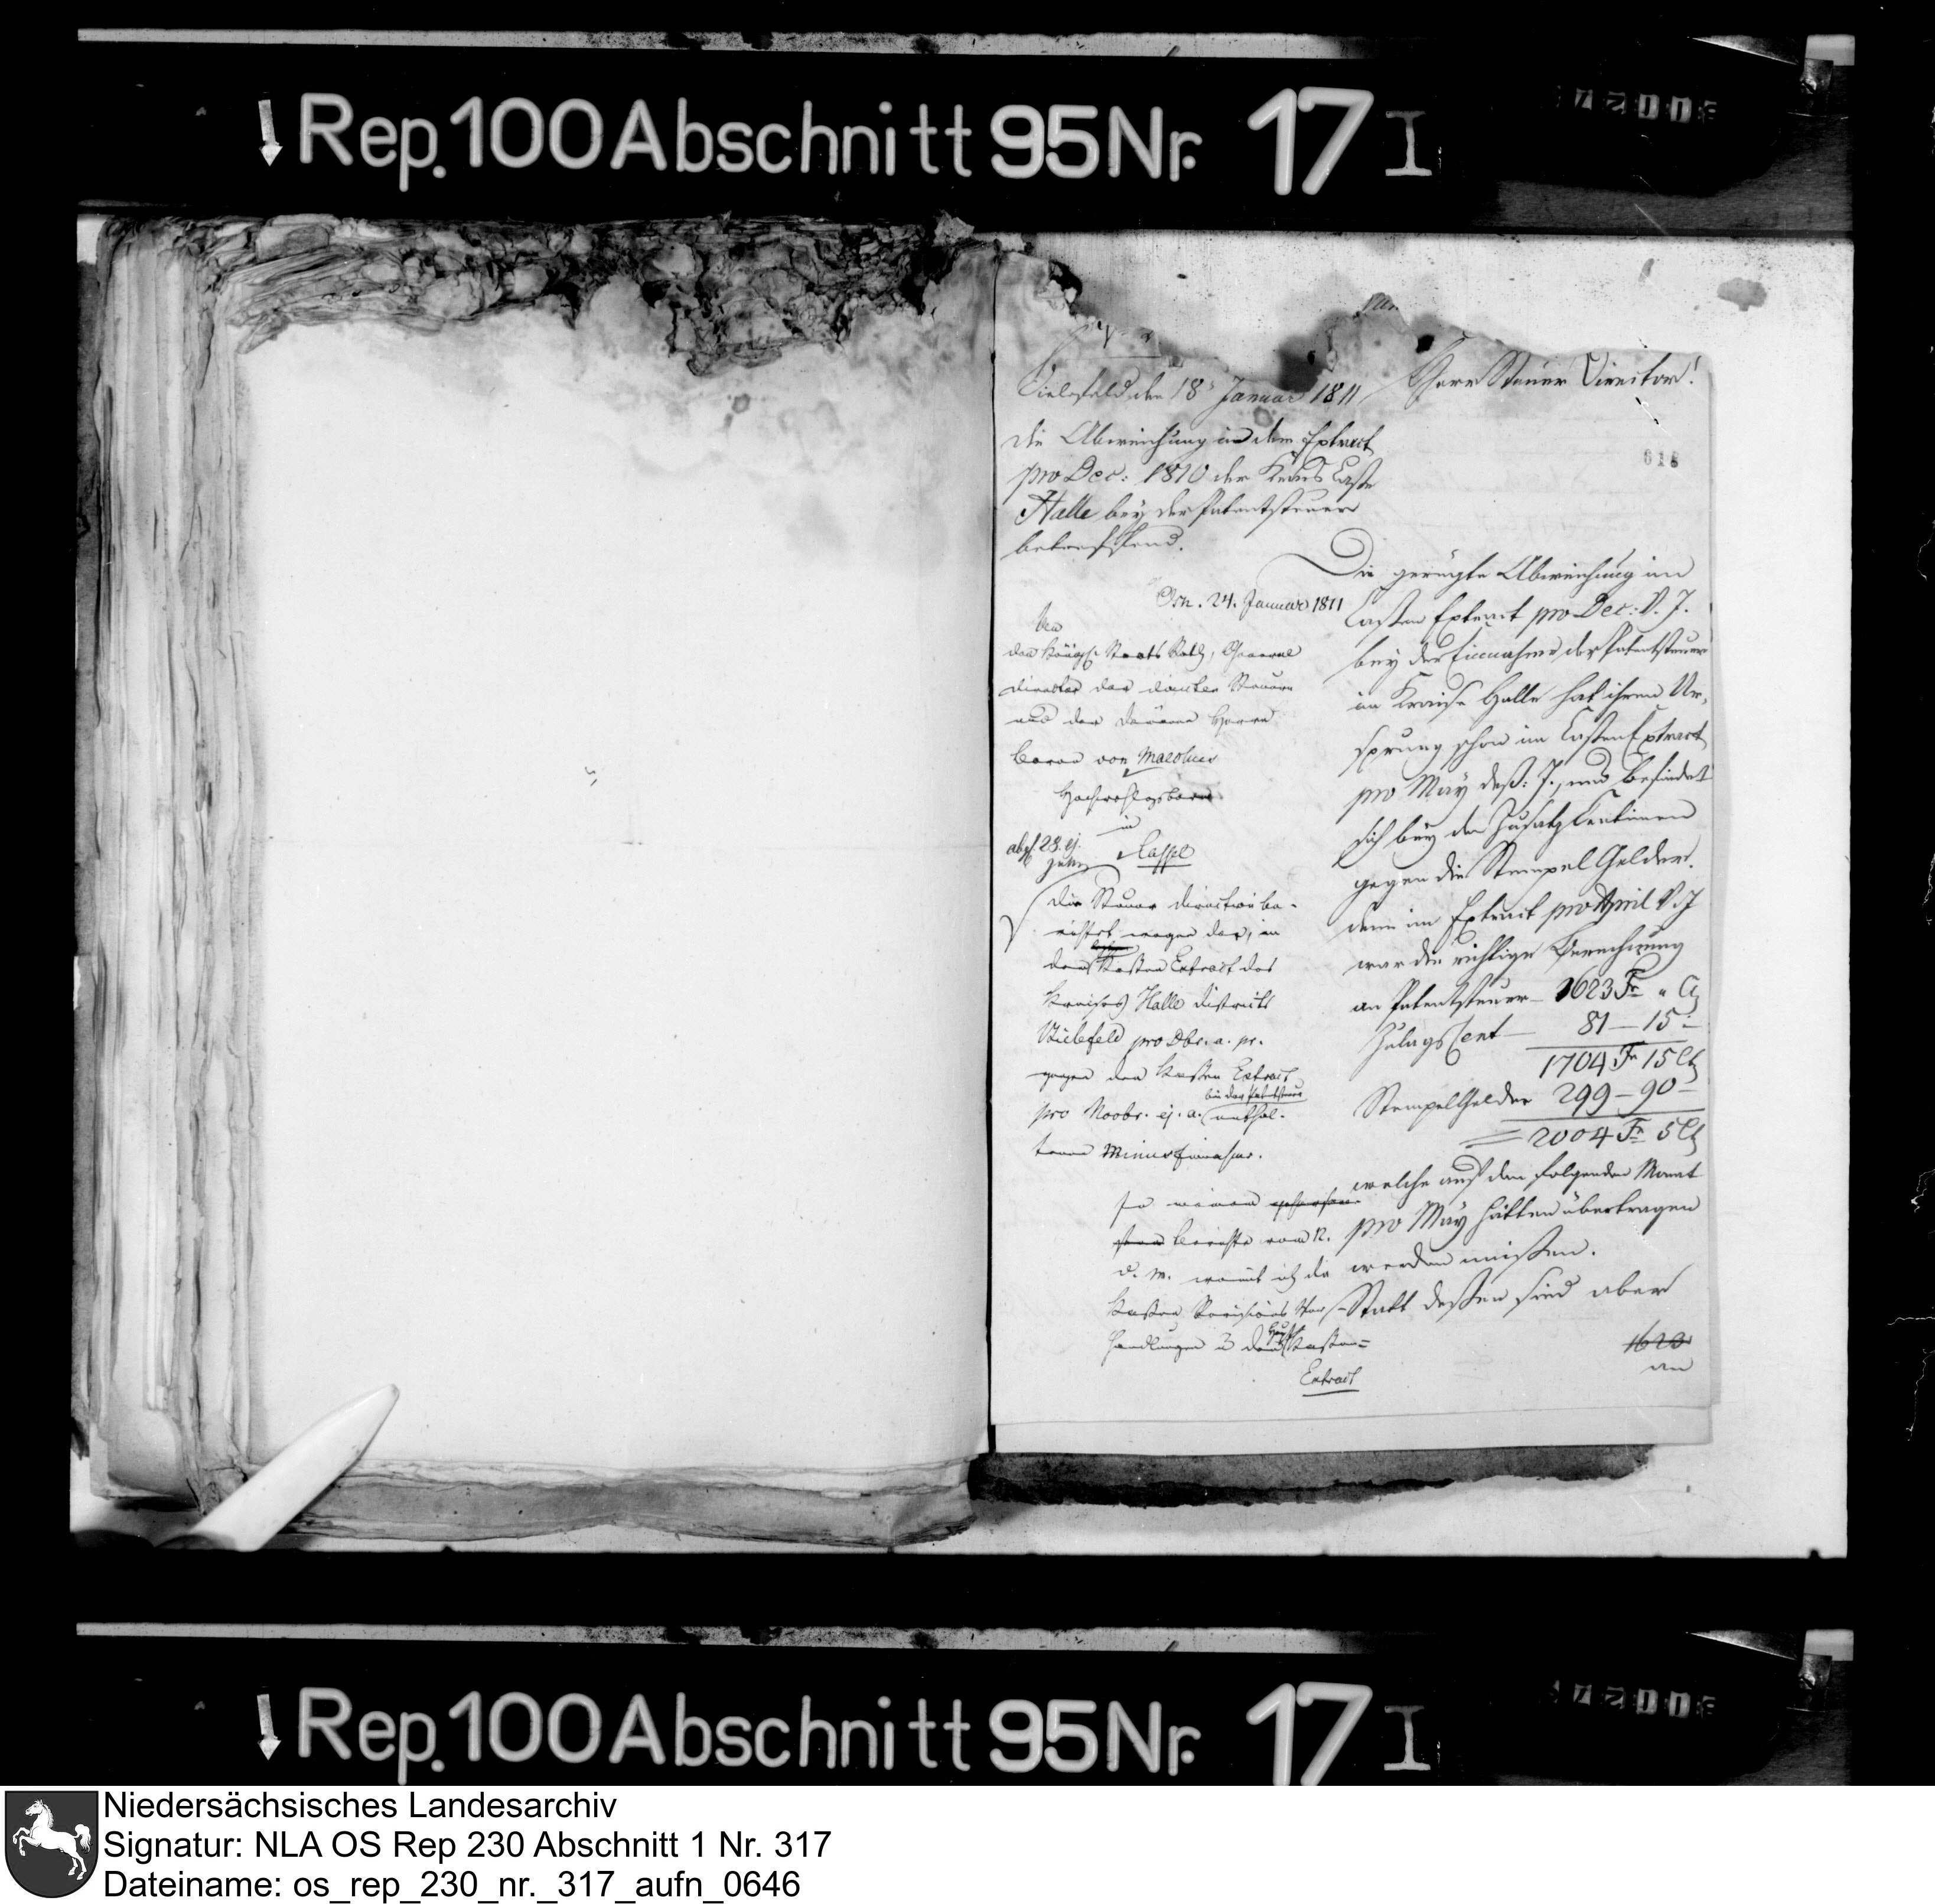 Rep. 100 Abschnitt 95 Nr. 17 I
Bielefeld den 18 Januar 1811
Herr Steuer Director!
618
die Abweichung in dem Extract
pro Dec: 1810 der Kreis Casse
Halle bey der Patentsteuer
betreffend.
Osn. 24. Januar 1811
An
den Königl. Staats Rath, General
director der directen Steuern
und der Domainen Herrn
Baron von Malchus
Hochwohlgeboren
in
Cassel
abgs. 28. ej.
Die Steuer Direction be-
richtet wegen der, in
dem Kassen Extract des
Kreises Halle Districts
Bielefeld pro Dbr. a. pr.
gegen den Kassen Extract
bei der Patentsteuer
pro Novbr. ej. a. enthal-
tenen Minus Einnahme.
In meinem gehorsam-
sten Berichte vom 12.
d. M. womit ich die
Kassen Revisions Ver-
handlungen u den Haupt Kassen-
Extract
Die gerügte Abweichung im
Cassen Extract pro Dec: v. J.
bey der Einnahme der Patentsteuer
im Kreise Halle hat ihren Ur-
sprung schon im Cassen Extract
pro May deß: J., und befindet
sich bey den Zusatz Centimen
gegen die Stempel Gelder.
denn im Extract pro April v. J
war die richtige Berechnung
an Patentsteuer 1623 Fr " C
Zulags Cent 81 - 15 -
1704 Fr 15 Ct
Stempel Gelder 299 - 90 -
= 2004 Fr 5 Ct
welche auf den folgenden Monat
pro May hätten übertragen
werden müssen.
Statt dessen sind aber
1620
an
Rep. 100 Abschnitt 95 Nr. 17 I
Niedersächsisches Landesarchiv
Signatur: NLA OS Rep 230 Abschnitt 1 Nr. 317
Dateiname: os_rep_230_nr._317_aufn_0646